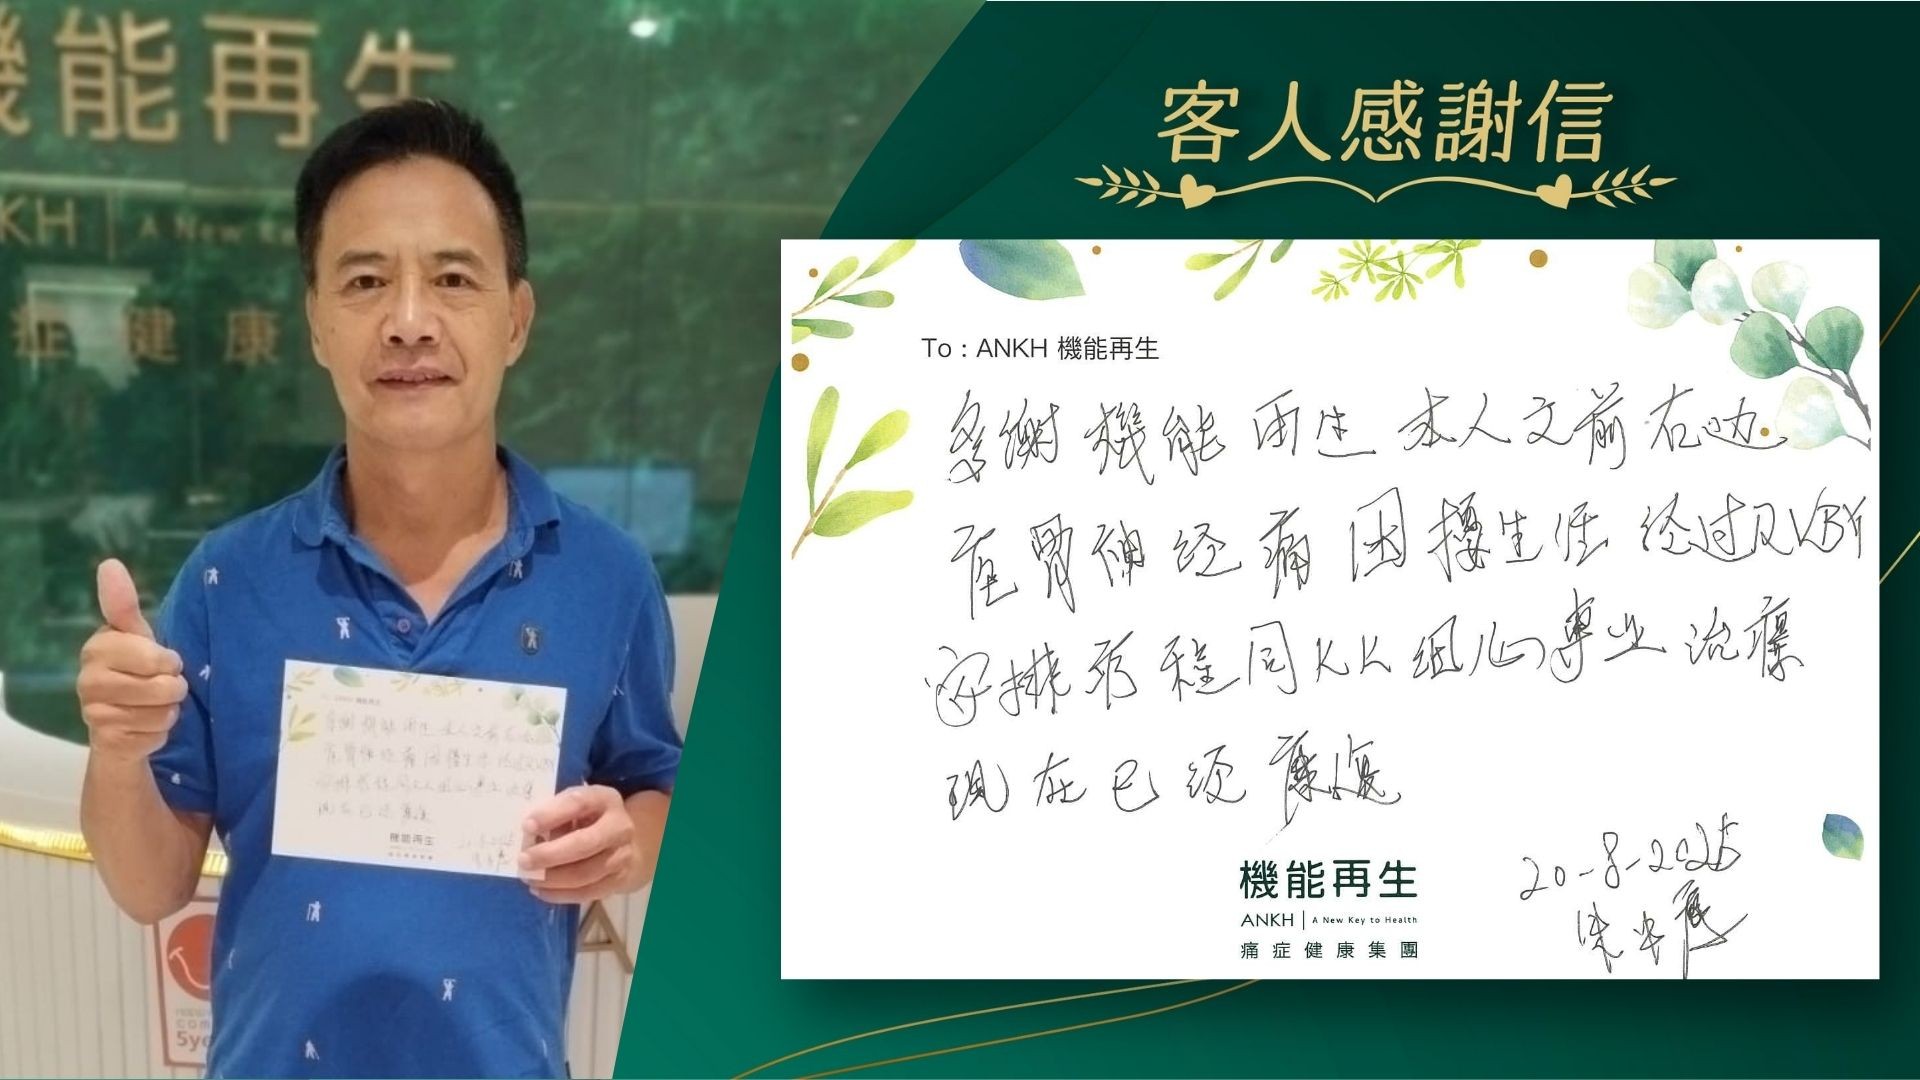 機能再生
ANKH | A New Ke
症 健 康
客人感謝信
To : ANKH 機能再生
多謝 機能 再生 本人之前右边
座骨神经痛因擾生活 经过 RUBY
安排疗程同KK 细心專业治療
现在已经康復
20-8-2025
機能再生
ANKH | A New Key to Health
痛症健康集團
com
5ye